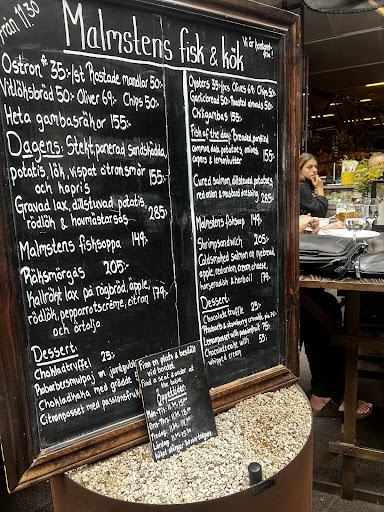 Från 11 30
Malmstens fisk & kök
Vi är
Ostron * 35:-/st Rostade mandlar 50:-
Vitlöksbröd 50:- Oliver 69:- Chips 50:-
Heta gambasräkor 155:-
Dagens: Stekt, panerad sandskädda,
potatis, lök, vispat citronsmör
och kapris 155:-
Gravad lax, dillstuvad potatis,
rödlök & hovmästarsås 285:-
Malmstens fisksoppa 149:-
Räksmörgås 205:-
Hallrökt lax på rågbröd, äpple,
rödlök, pepparrotscrème, citron 170:-
och örtolja
Dessert:
Chokladtryffel 25:-
Rabarbersmulpaj m. jordgubb
Chokladkaka med grädde
Citronposset med passionsfrukt
Oysters 35:-/pcs Olives 69:- Chips 50:-
Garlicbread 50:- Roasted almonds 50:-
Chiligambas 155:-
Fish of the day: Breaded, panfried
common dab, potatoes, onions,
capers & lemonbutter 155:-
Cured salmon, dillstuved potatoes,
red onion & mustard dressing 285:-
Malmstens fishsoup 149:-
Shrimpsandwich 205:-
Coldsmoked salmon on ryebread,
apple, red onion, cream cheese,
horseradish & herboil 170:-
Dessert:
Chocolate truffle 25:-
Rhubarb & strawberry crumble
Lemonposset with passionfruit 75:-
Chocolatecake with 55:-
whipped cream
Finn en plats & beställ
vid bordet
Find a seat & order at
the table
Öppettider:
Mån-Tis:
Ons-Tors:
Fredag:
Lördag: